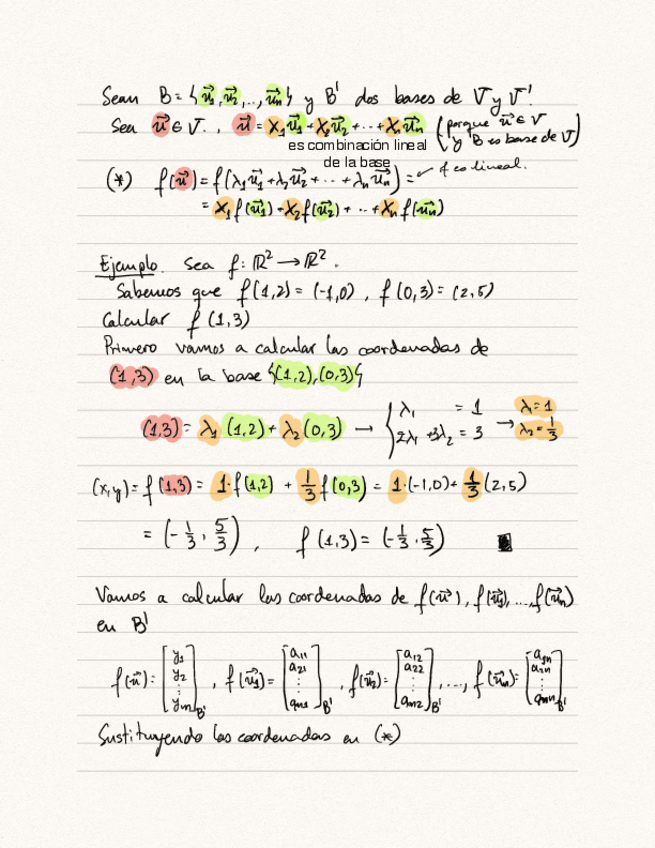 Sean B = {u₁, u₂, .., uₙ} y B' dos bases de V y V'.
Sea u⃗ ∈ V. , u⃗ = x₁u₁⃗ + x₂u₂⃗ + ... + xₙuₙ⃗ (porque u⃗ ∈ V y B es base de V)
es combinación lineal
de la base
(*) f(u⃗) = f(λ₁u₁⃗ + λ₂u₂⃗ + ... + λₙuₙ⃗) = ✓ f es lineal.
= x₁f(u₁⃗) + x₂f(u₂⃗) + ... + xₙf(uₙ⃗)
Ejemplo. Sea f: ℝ² → ℝ².
Sabemos que f(1,2) = (-1,0) , f(0,3) = (2,5)
Calcular f(1,3)
Primero vamos a calcular las coordenadas de
(1,3) en la base {(1,2),(0,3)}
(1,3) = λ₁(1,2) + λ₂(0,3) → { λ₁ = 1 → λ₁ = 1
2λ₁ + 3λ₂ = 3 λ₂ = 1/3
(x,y) = f(1,3) = 1·f(1,2) + 1/3 f(0,3) = 1·(-1,0) + 1/3 (2,5)
= (-1/3, 5/3) , f(1,3) = (-1/3, 5/3)
Vamos a calcular las coordenadas de f(u⃗), f(u₁⃗), ..., f(uₙ⃗)
en B'
f(u⃗) = [y₁ y₂ ⋮ yₘ]B' , f(u₁⃗) = [a₁₁ a₂₁ ⋮ aₘ₁]B' , f(u₂⃗) = [a₁₂ a₂₂ ⋮ aₘ₂]B' , ..., f(uₙ⃗) = [a₁ₙ a₂ₙ ⋮ aₘₙ]B'
Sustituyendo las coordenadas en (*)